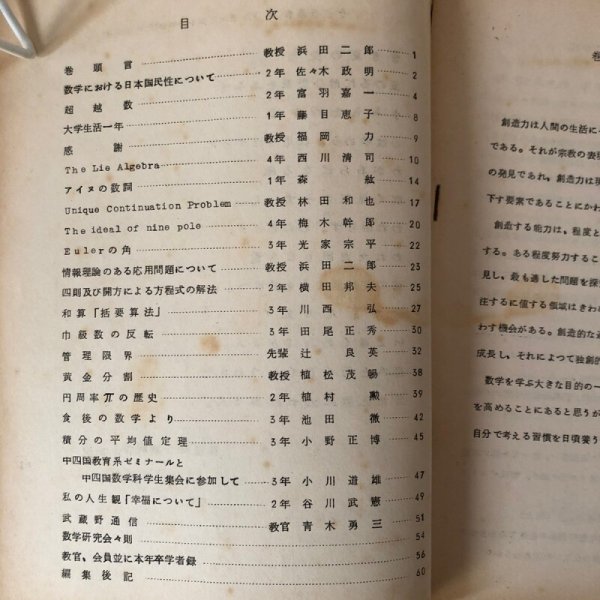 目 次
巻頭言 教授 浜田二郎 1
数学における日本国民性について 2年 佐々木政明 2
超越数 2年 富羽嘉一 4
大学生活一年 1年 藤目恵子 8
感謝 教授 福岡力 9
The Lie Algebra 4年 西川清司 10
アイヌの数詞 1年 森紘 14
Unique Continuation Problem 教授 林田和也 17
The ideal of nine pole 4年 梅木幹郎 20
Eulerの角 3年 光家宗平 22
情報理論のある応用問題について 教授 浜田二郎 23
四則及び開方による方程式の解法 2年 横田邦夫 25
和算「括要算法」 3年 川西弘 27
巾級数の反転 3年 田尾正秀 30
管理限界 先輩 辻良英 32
黄金分割 教授 植松茂暢 38
円周率πの歴史 2年 植村勲 39
食後の数学より 3年 池田徹 42
積分の平均値定理 3年 小野正博 45
中四国教育系ゼミナールと
中四国数学科学生集会に参加して 3年 小川道雄 47
私の人生観「幸福について」 2年 谷川武憲 49
武蔵野通信 教官 青木勇三 51
数学研究会々則 54
教官、会員並に本年卒学者録 56
編集後記 60
創造力は人間の生活にと
である。それが宗教の表現
の発見であれ、創造力は現
下す要素であることにかわ
創造する能力は、程度と
する。ある程度努力するこ
見し、最も適した問題を探
注するに値する領域はきわ
わす機会がある。創造的な
成長し、それによつて独創的
数学を学ぶ大きな目的の一
を高めることにあると思うが
自分で考える習慣を日頃養う